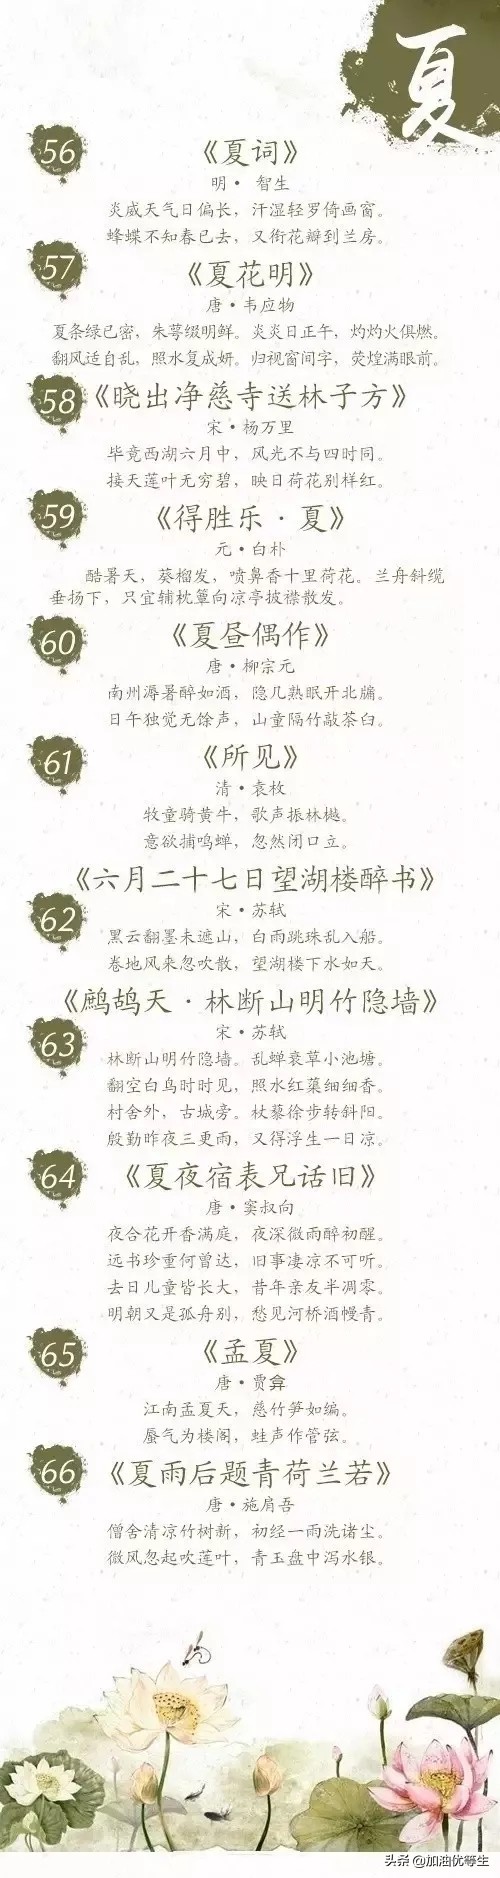 夏
56
《夏词》
明·智生
炎威天气日偏长，汗湿轻罗倚画窗。
蜂蝶不知春已去，又衔花瓣到兰房。
57
《夏花明》
唐·韦应物
夏条绿已密，朱萼缀明鲜。炎炎日正午，灼灼火俱燃。
翻风适自乱，照水复成妍。归视窗间字，荧煌满眼前。
58
《晓出净慈寺送林子方》
宋·杨万里
毕竟西湖六月中，风光不与四时同。
接天莲叶无穷碧，映日荷花别样红。
59
《得胜乐·夏》
元·白朴
酷暑天，葵榴发，喷鼻香十里荷花。兰舟斜缆
垂扬下，只宜辅枕簟向凉亭披襟散发。
60
《夏昼偶作》
唐·柳宗元
南州溽暑醉如酒，隐几熟眠开北牖。
日午独觉无馀声，山童隔竹敲茶臼。
61
《所见》
清·袁枚
牧童骑黄牛，歌声振林樾。
意欲捕鸣蝉，忽然闭口立。
《六月二十七日望湖楼醉书》
62
宋·苏轼
黑云翻墨未遮山，白雨跳珠乱入船。
卷地风来忽吹散，望湖楼下水如天。
《鹧鸪天·林断山明竹隐墙》
63
宋·苏轼
林断山明竹隐墙。乱蝉衰草小池塘。
翻空白鸟时时见，照水红蕖细细香。
村舍外，古城旁。杖藜徐步转斜阳。
殷勤昨夜三更雨，又得浮生一日凉。
64
《夏夜宿表兄话旧》
唐·窦叔向
夜合花开香满庭，夜深微雨醉初醒。
远书珍重何曾达，旧事凄凉不可听。
去日儿童皆长大，昔年亲友半凋零。
明朝又是孤舟别，愁见河桥酒幔青。
65
《孟夏》
唐·贾弇
江南孟夏天，慈竹笋如编。
蜃气为楼阁，蛙声作管弦。
66
《夏雨后题青荷兰若》
唐·施肩吾
僧舍清凉竹树新，初经一雨洗诸尘。
微风忽起吹莲叶，青玉盘中泻水银。
头条 @加油优等生